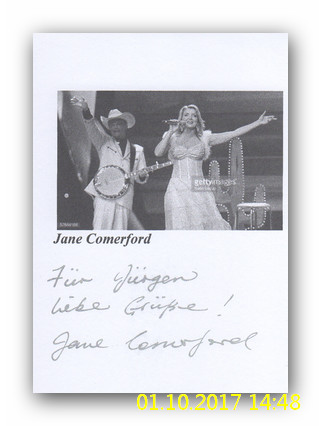 gettyimages
Jane Comerford
Für Jürgen
liebe Grüße!
Jane Comerford
01.10.2017 14:48